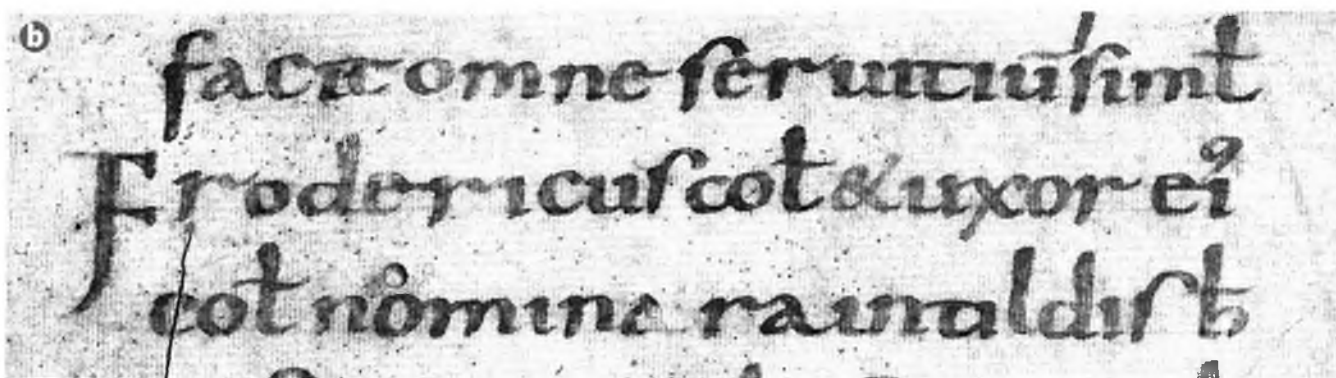 b
facit omne seruitiū simł
Frodericus coł & uxor eiꝰ
coł nomine raintildis ħ